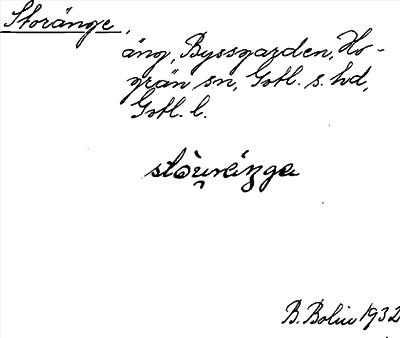 Storänge,
äng, Byssgarden, Ho-
grän sn, Gotl. s. hd,
Gotl. l.
B. Bolin 1932